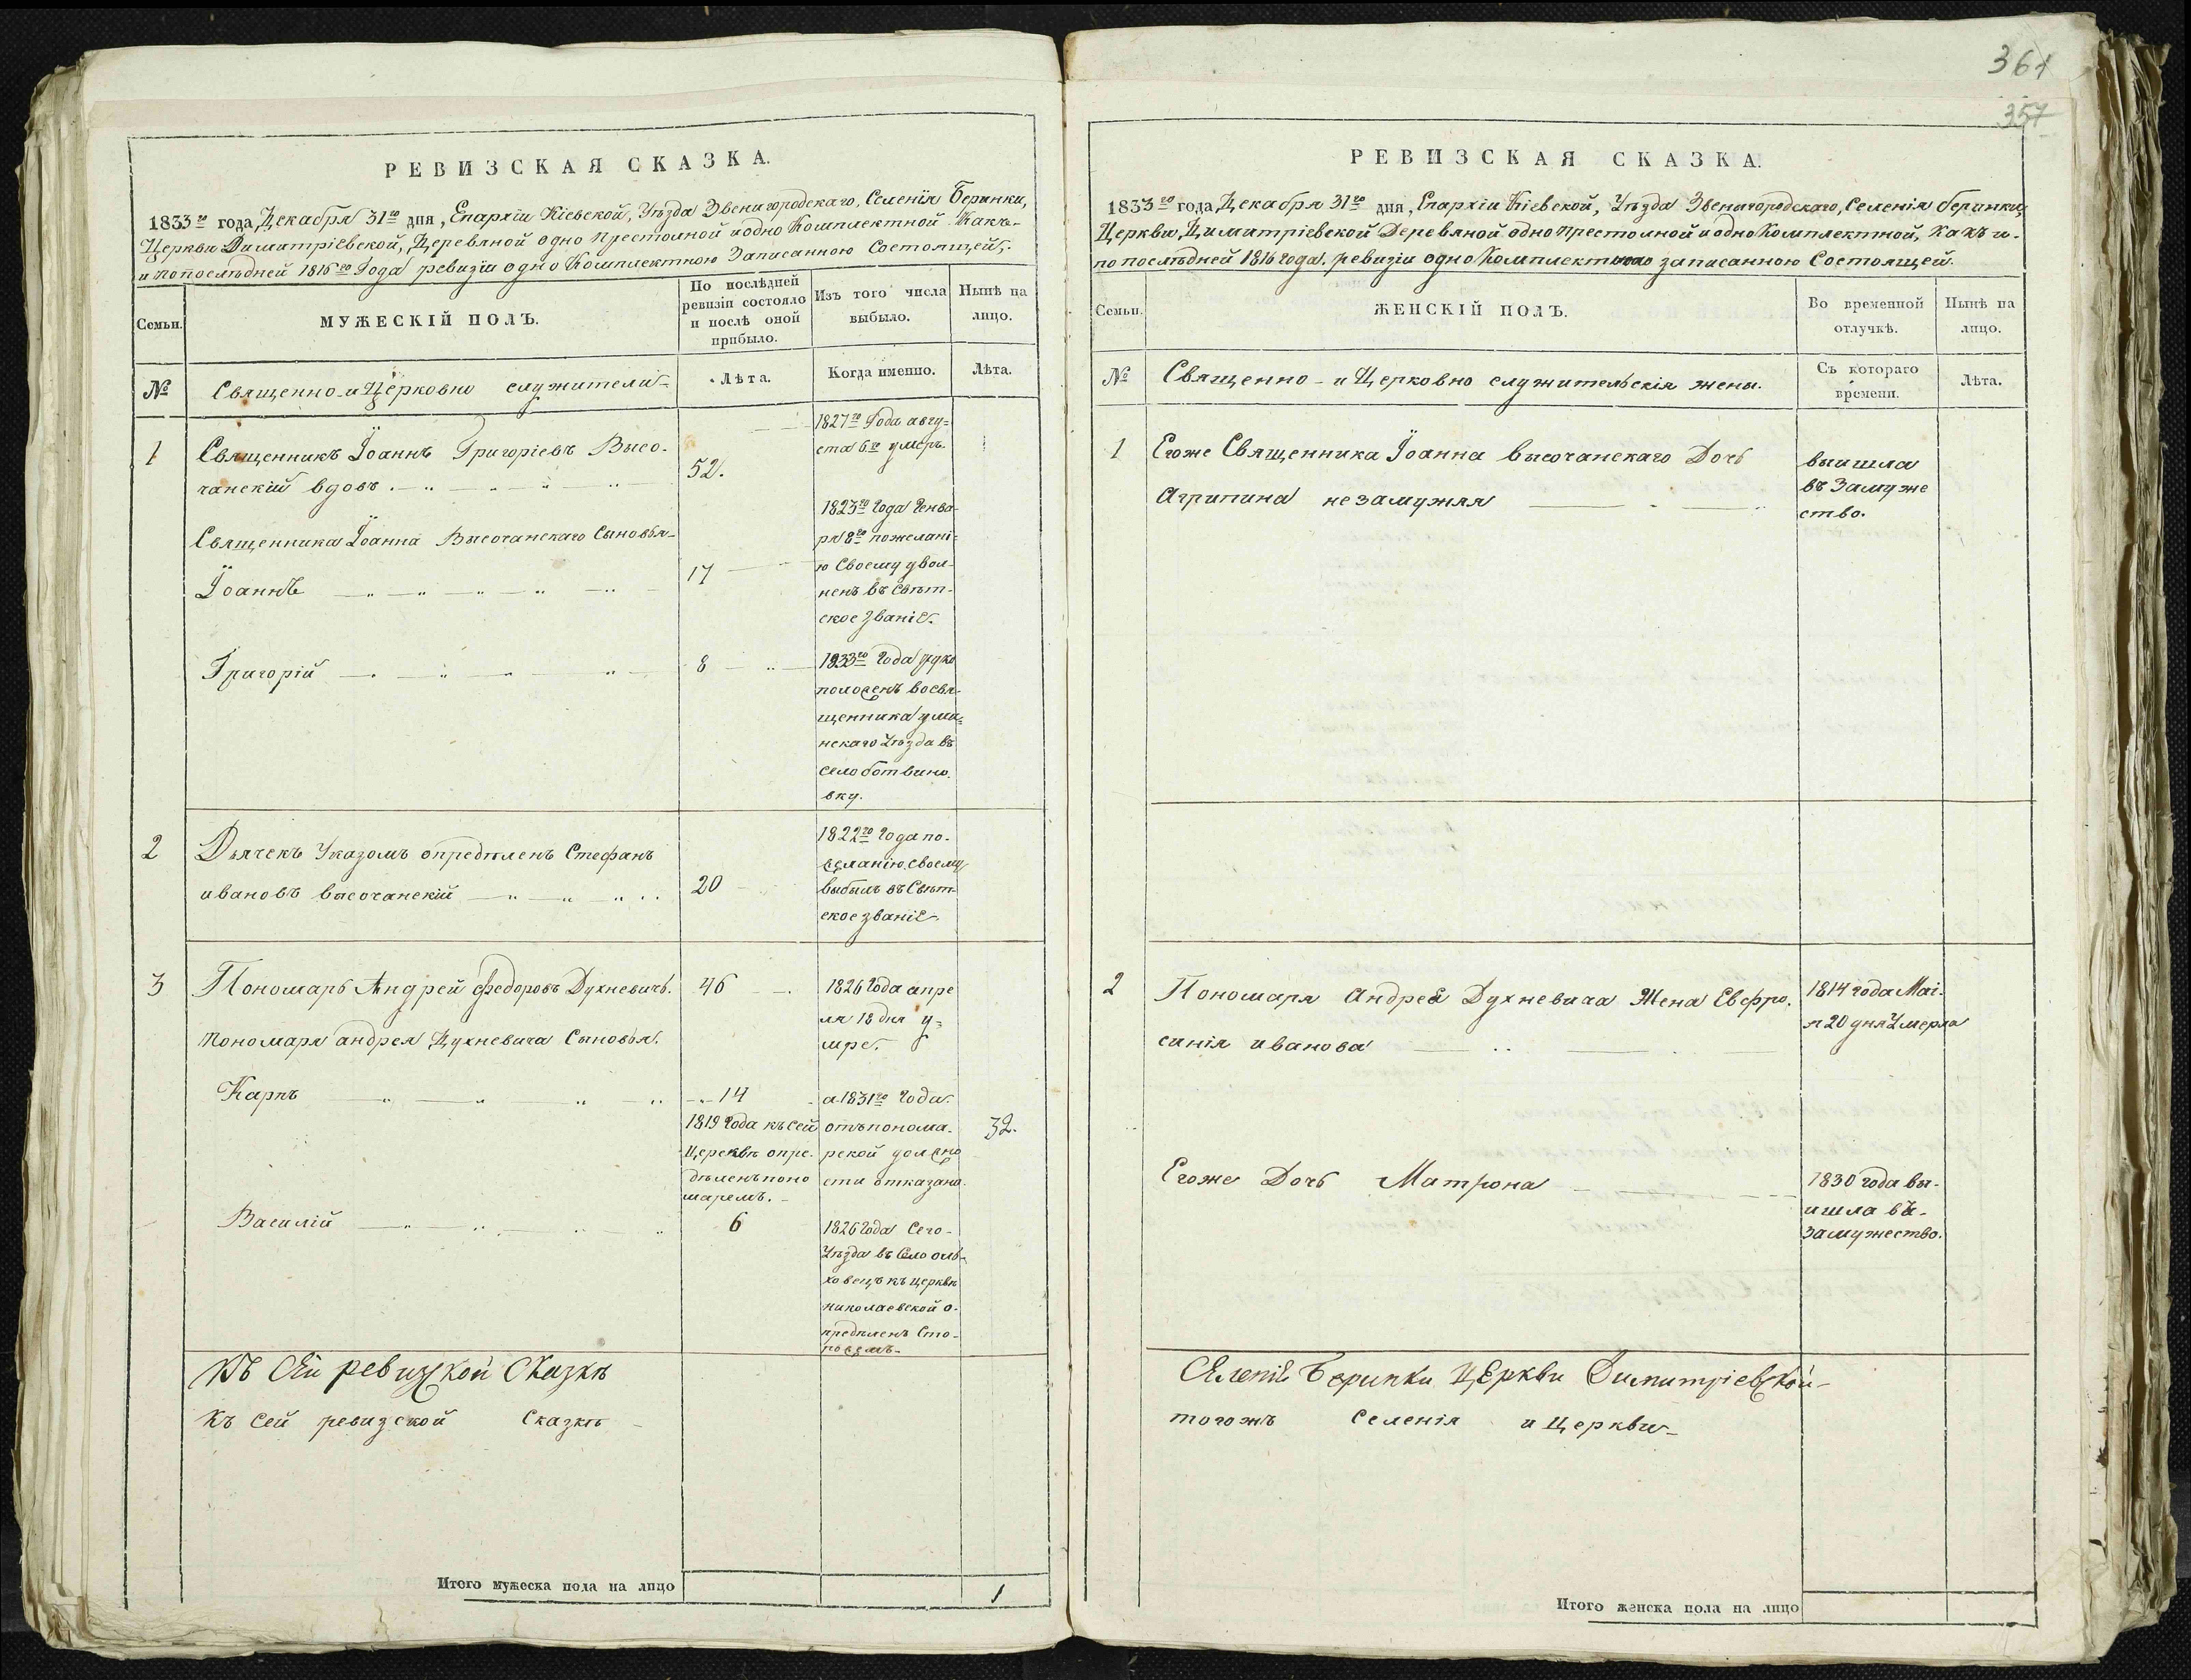 РЕВИЗСКАЯ СКАЗКА.
1833го года, Декабря 31го дня, Епархіи Кіевской, Уѣзда Звенигородскаго, Селенія Беринки,
Церкви Димитріевской, Деревяной одно Престолной и одно Комплектной Какъ-
и попослѣдней 1816го Года ревизіи одно Комплектною Записанною Состоящей,:
Семьи.
МУЖЕСКІЙ ПОЛЪ.
По послѣдней
ревизіи состояло
и послѣ оной
прибыло.
Изъ того числа
выбыло.
Нынѣ на
лицо.
№
Священно-и Церковно служители-
Лѣта.
Когда именно.
Лѣта.
1
Священникъ Іоаннъ Григоріевъ Высо-
чанскій вдовъ.
52.
1827го Года авгу=
ста 6го умеръ.
Священника Іоанна Высочанскаго Сыновья-
Іоаннъ
17
1823го года Генва-
ря 8го пожелані=
ю Своему увол-
ненъ въ Свѣт-
ское Званіе.
Григорій
8
1833го Года руко
положенъ восвя-
щенника ума=
нскаго Уѣзда въ
село ботвино-
вку.
2
Дьячекъ Указомъ опредѣленъ Стефанъ
ивановъ высочанскій
20
1822го Года по-
желанію своему
выбылъ въ Свѣт-
ское званіе.
3
Пономарь Андрей Федоровъ Духневичъ.
46
1826 Года апре
ля 18 дня у=
мре.
Пономаря андрея Духневича Сыновья.
Карпъ
14
1819 Года къ сей
Церквѣ опре-
дѣленъ поно
маремъ.
а 1831го Года.
отъ понома-
рской должно
сти отказано.
32.
Василій
6
1826 Года Сего-
Уѣзда въ Село оль-
ховецъ къ церквѣ
николаевской о-
предѣленъ Сто-
рожемъ-
Къ Сей ревизской Сказкѣ
Къ Сей ревизской Сказкѣ
Итого мужеска пола на лицо
1
361
357
РЕВИЗСКАЯ СКАЗКА.
1833го года, Декабря 31го дня, Епархіи Кіевской, Уѣзда Звенигородскаго, Селенія беринки,
Церкви, Димитріевской Деревяной одно престолной и одно Комплектной, какъ и-
по послѣдней 1816 года. ревизіи одно Комплектною записанною Состоящей.
Семьи.
ЖЕНСКІЙ ПОЛЪ.
Во временной
отлучкѣ.
Нынѣ на
лицо.
№
Священно-и Церковно служительскія жены.
Съ котораго
времени.
Лѣта.
1
Егоже Священника Іоанна высочанскаго Дочь
Агрипина незамужняя
вышла
въ Замуже
ство.
2
Пономаря Андрея Духневича Жена Евфро-
синія иванова
1814 года Маі-
я 20 дня Умерла
Егоже Дочь Матрона
1830 года вы-
ишла въ-
замужество.
Селеніе Беринки Церкви Димитріевской-
тогожъ Селенія и Церкви-
Итого женска пола на лицо